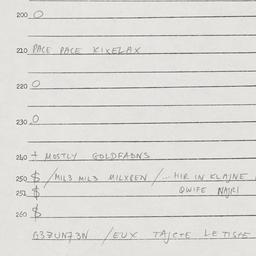 200 O
210 PACE PACE KIXELAX
220 O
230 O
240 + MOSTLY GOLDFADNS
250 $ /MIL3 MIL3 MILXEEN /... HIR IN KLAJNE
251 $ QWIFE NAJRI
260 $
G37UN73N /EUX TAJCTE LETISTE